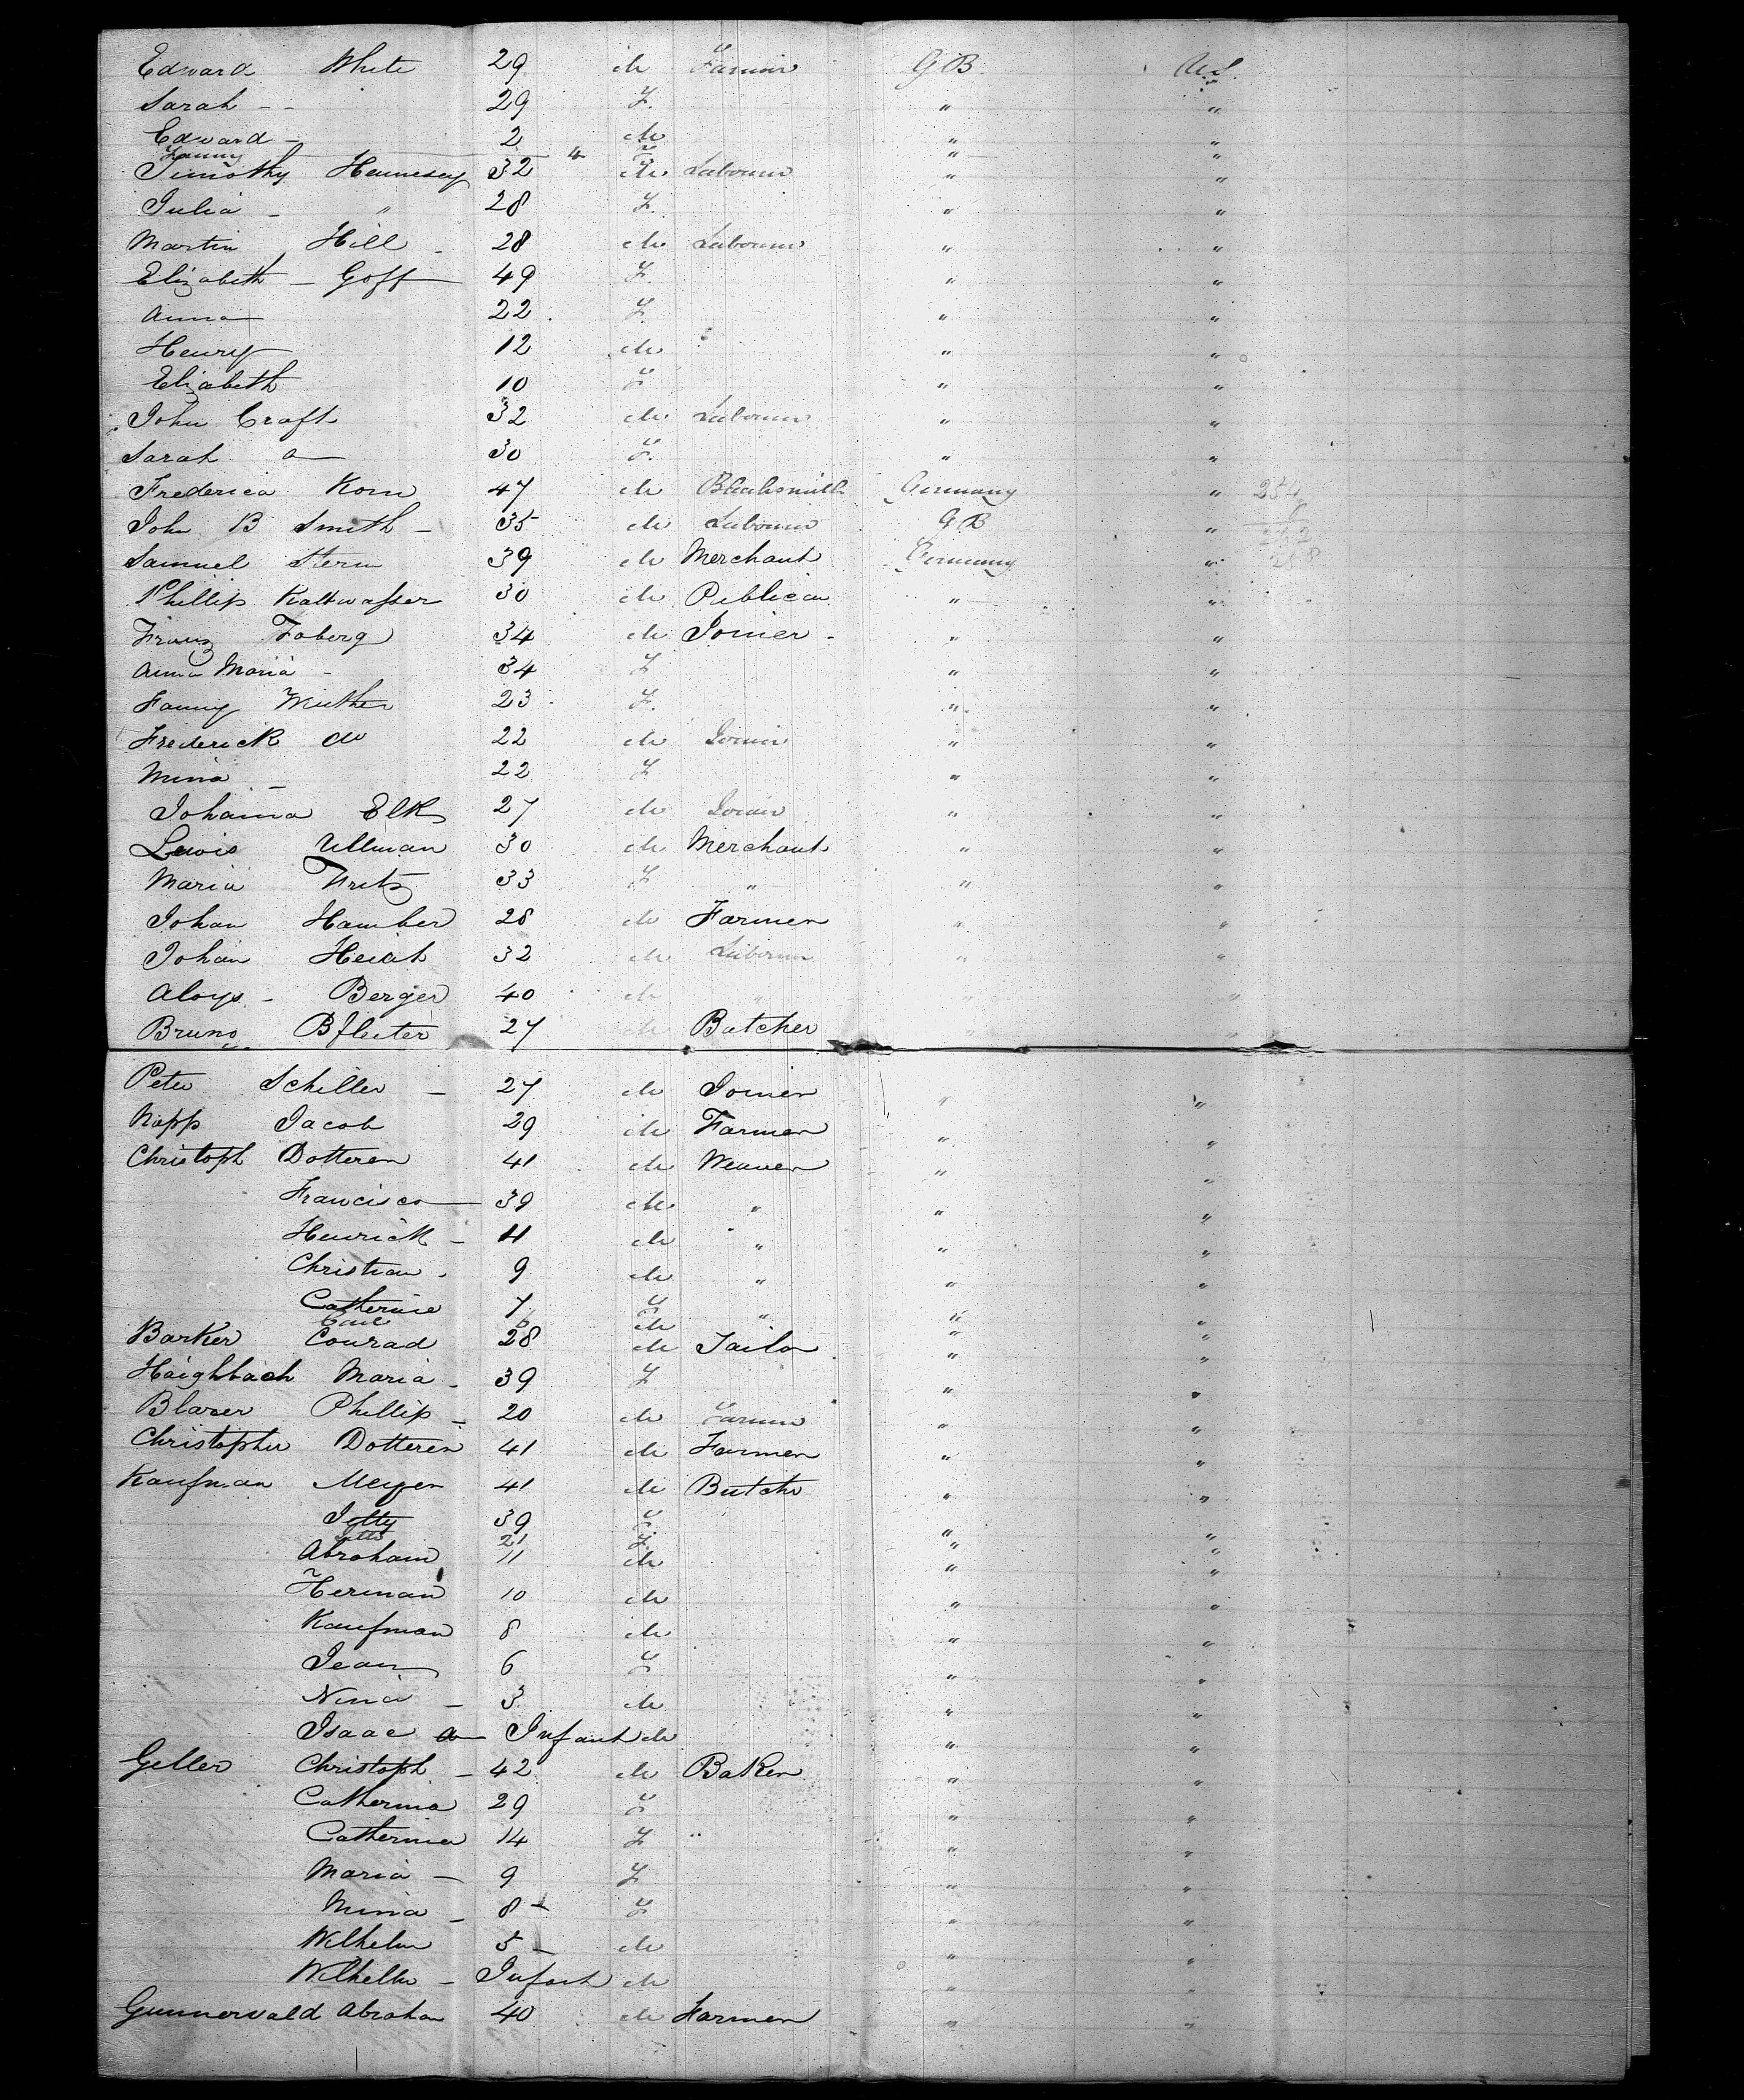 Edward White 29 M Farmer G B U.S.
Sarah - - 29 F. " "
Edward - 2 M " "
Fanny 4 F " "
Timothy Hennesey 32 M Labourer " "
Julia - " 28 F. " "
Martin Hill - 28 M Labourer " "
Elizabeth - Goff 49 F. " "
Anna 22 F. " "
Henry 12 M " "
Elizabeth 10 F " "
John Craft 32 M Labourer " "
Sarah a 30 F. " "
Frederica Korn 47 M Blacksmith Germany " 254
John B Smith - 35 M Labourer G B "
Samuel Stern 39 M Merchant Germany " 258
Phillip Kaltwasser 30 M Publican " "
Franz Foberg 34 M Joiner - " "
Anna Maria - 34 F " "
Fanny Muther 23 F. " "
Frederick do 22 M Joiner " "
Mina - 22 F " "
Johanna Elk 27 M Joiner " "
Lewis Ullman 30 M Merchant " "
Maria Fritz 33 F " " "
Johan Hamber 28 M Farmer " "
Johan 32 M Labourer " "
Aloys - Berger 40 M " " "
Bruno Bfleiter 27 M Butcher " "
Peter Schiller - 27 M Joiner " "
Napp Jacob 29 M Farmer " "
Christoph Dotteren 41 M Weaver " "
Francisca 39 M " " "
Henrick - 11 M " " "
Christian - 9 M " " "
Catherine 7 F " " "
Carl 6 M " "
Barker Conrad 28 M Tailor " "
Haighbach Maria - 39 F " "
Blaser Phillip - 20 M Farmer " "
Christopher Dotteren 41 M Farmer " "
Kaufman Meyer 41 M Butcher " "
Jetty 39 F " "
21 F. " "
Abraham 11 M " "
Herman 10 M " "
Kaufman 8 M " "
Jean 6 F " "
Nina - 3 M " "
Isaac a Infant M " "
Geller Christoph - 42 M Baker " "
Catherina 29 F " "
Catherina 14 F " " "
Maria - 9 F " "
Mina - 8 - F " "
Wilhelm 5 - M " "
Wilhelm - Infant M " "
Gunnerwald Abraham 40 M Farmer " "